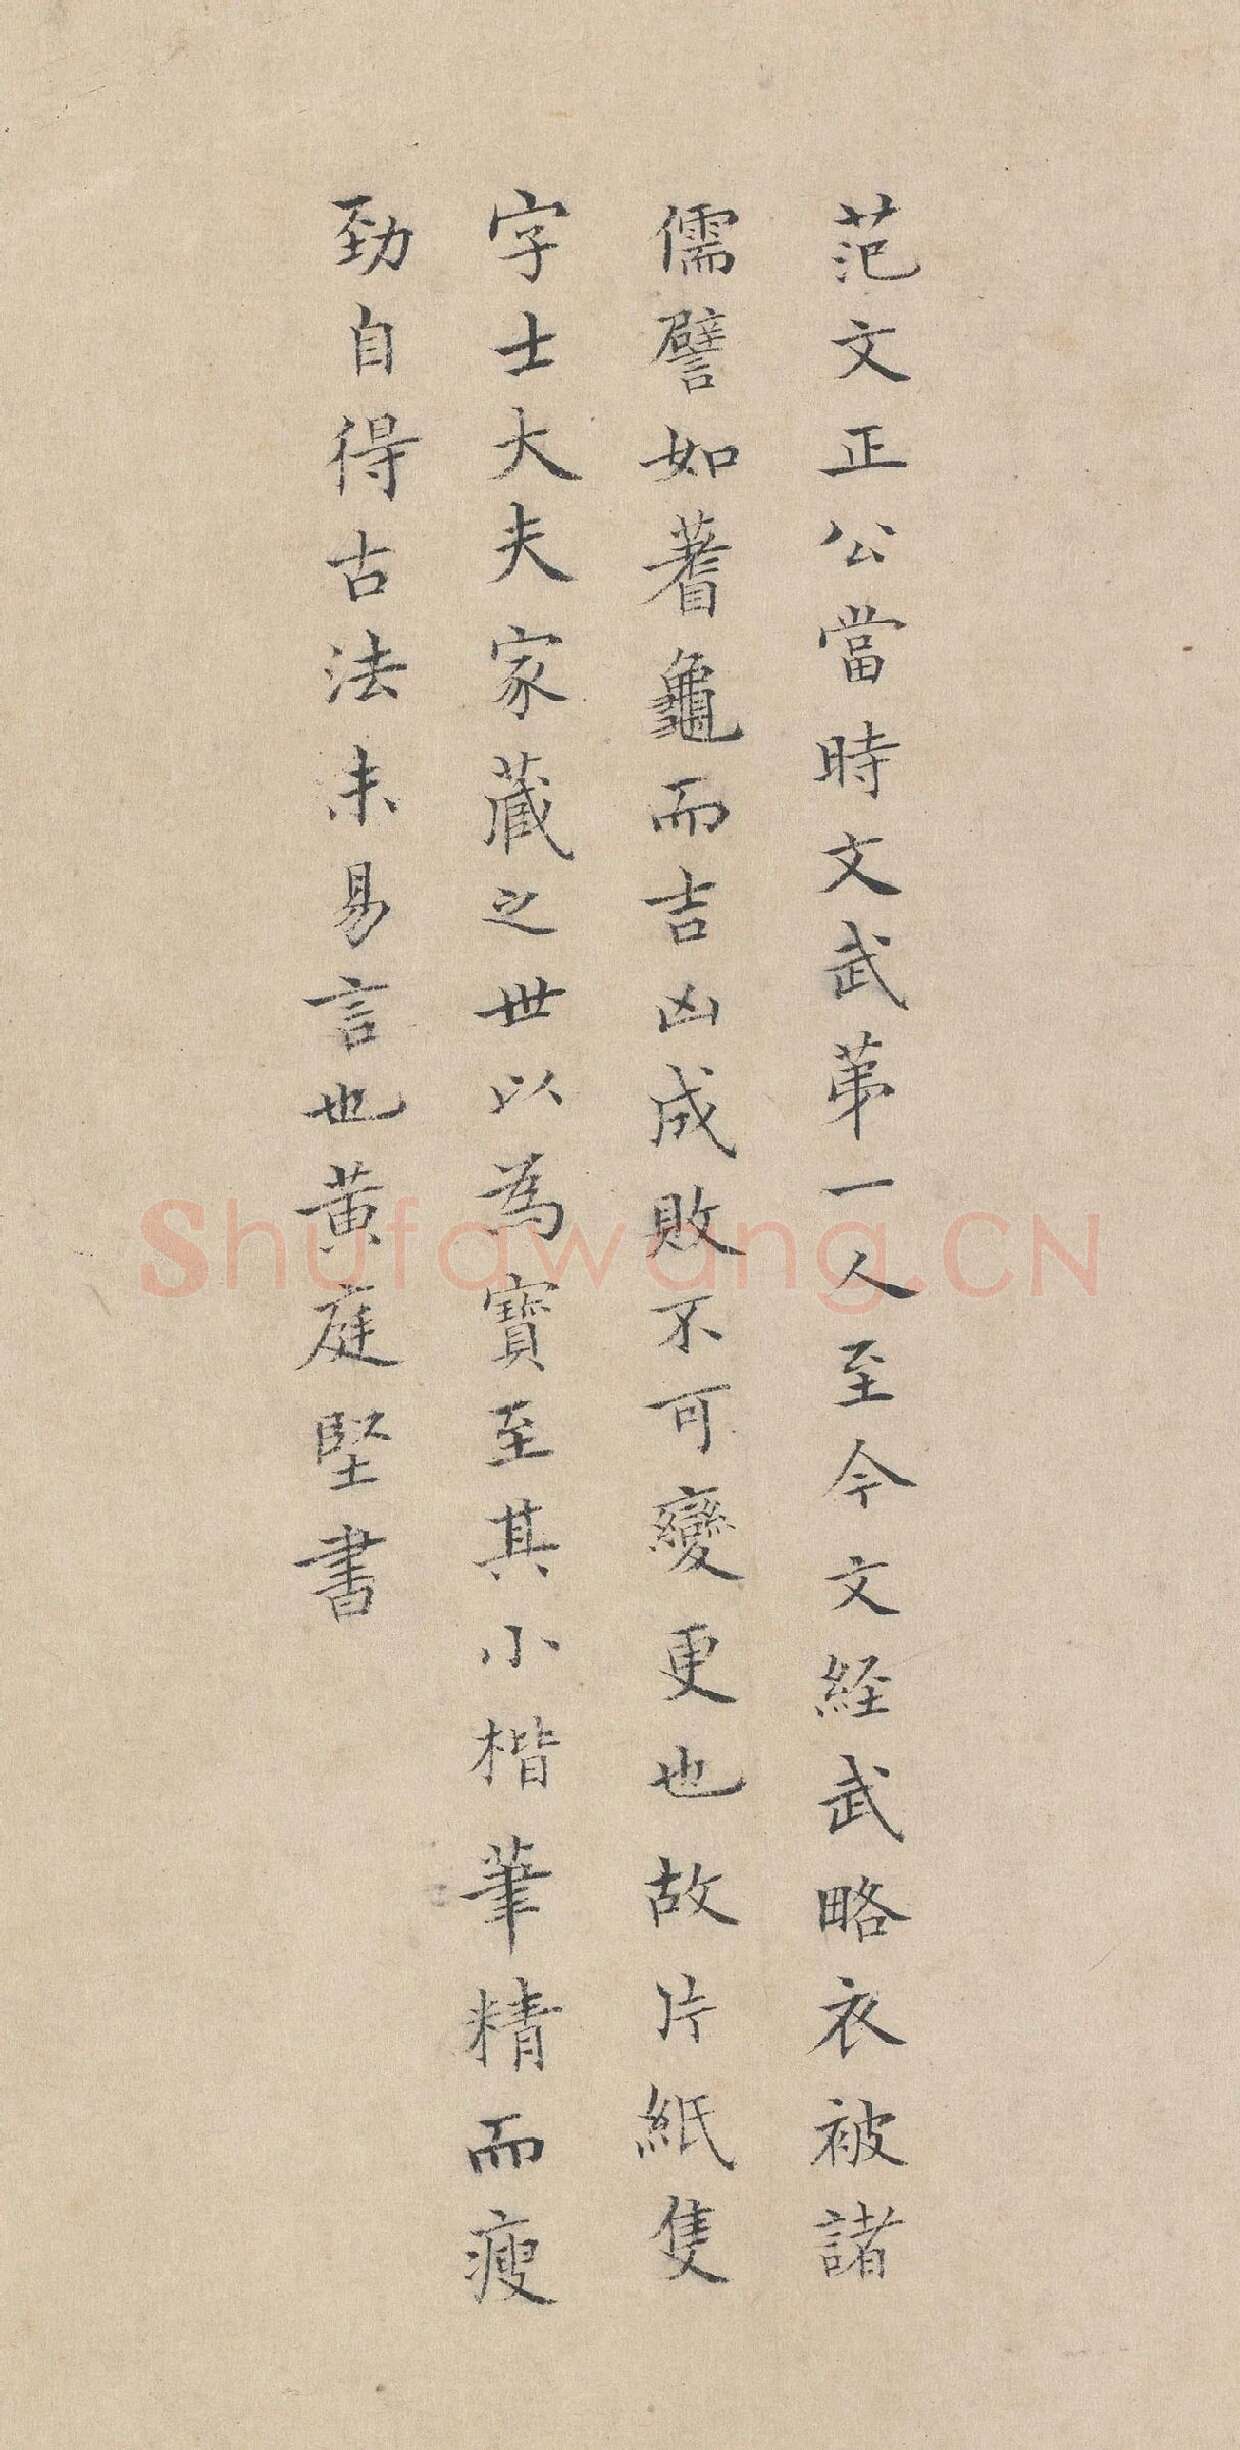 范文正公當時文武苐一人至今文経武略衣被諸
儒譬如蓍龜而吉凶成敗不可變更也故片紙隻
字士大夫家藏之世以為寶至其小楷筆精而瘦
勁自得古法未易言也黃庭堅書
Shufawang.CN